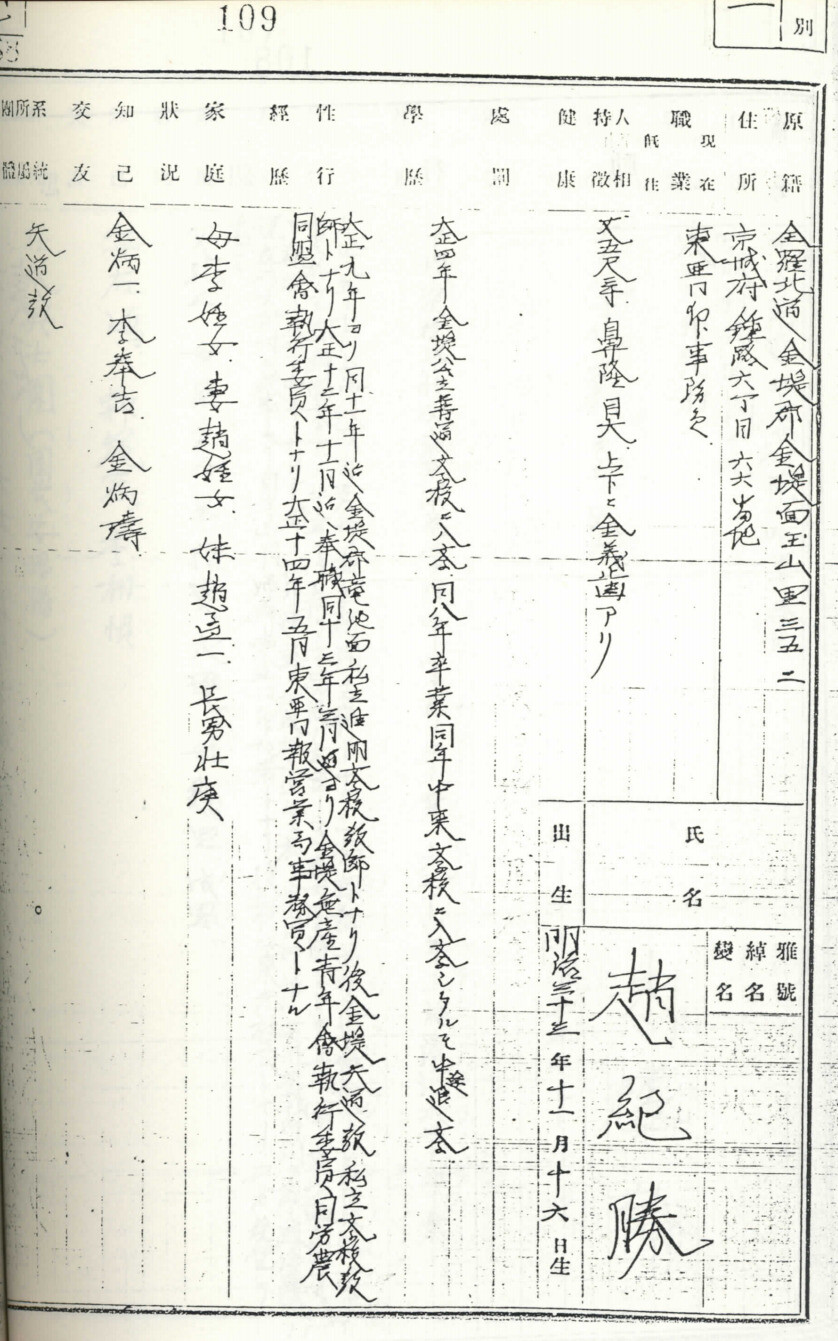 109
別
一
原籍
全羅北道金堤郡金堤面玉山里三五二
住所
京城府鍾路六丁目六六番地
職業
現在
東亜日報事務員
既往
人相
特徴
丈五尺 鼻隆 目大 上下ニ金義歯アリ
健康
處罰
學歷
大正四年金堤公立普通学校ニ入学同八年卒業同年中東学校ニ入学シタルモ中途退学
性行
經歷
大正九年ヨリ同十一年迄金堤郡竜池面私立進明学校教師トナリ後金堤天道教私立学校教
師トナリ大正十二年十二月迄奉職同十三年三月ヨリ金堤無産青年會執行委員同労農
同盟會執行委員トナリ大正十四年五月東亜日報営業局事務員トナル
家庭
狀況
母李姓女 妻趙姓女 妹趙孟一 長男壮庚
知己
交友
金炳一 李奉吉 金炳璹
系統
所屬
團體
天道教
氏名
趙紀勝
雅號
綽名
變名
出生
明治三十三年十一月十六日生